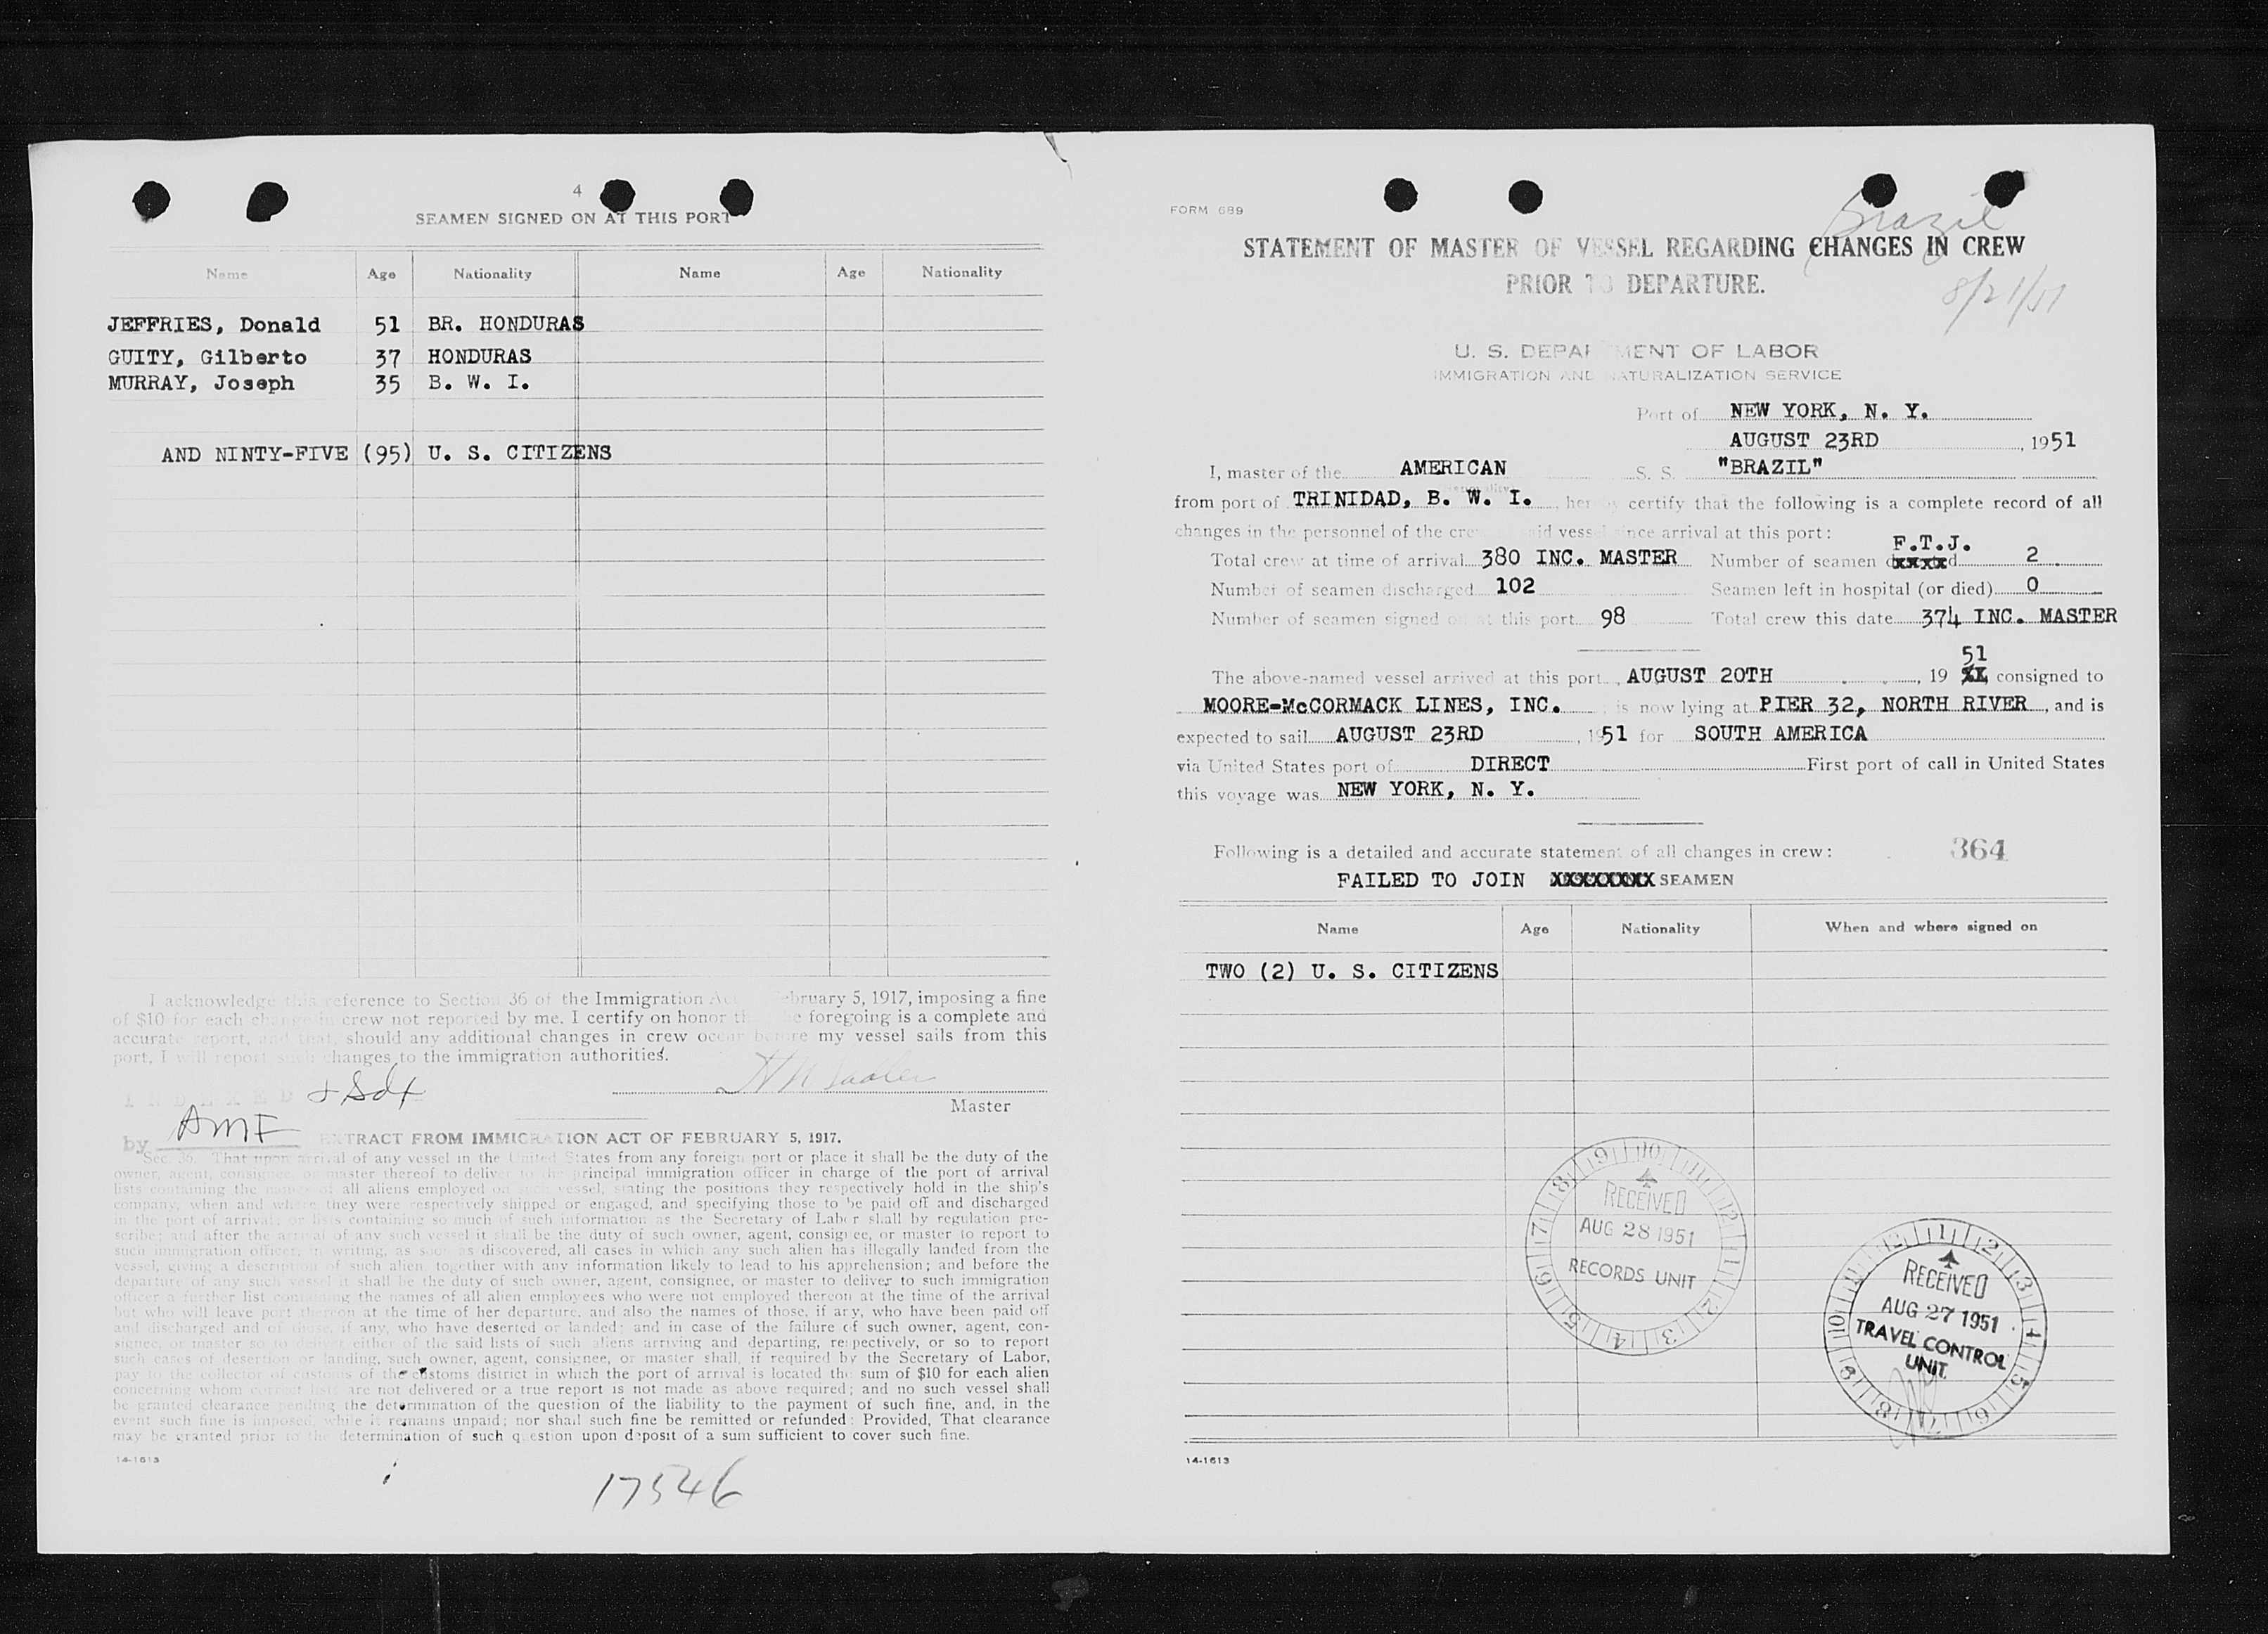 4
SEAMEN SIGNED ON AT THIS PORT
Name Age Nationality Name Age Nationality
JEFFRIES, Donald 51 BR. HONDURAS
GUITY, Gilberto 37 HONDURAS
MURRAY, Joseph 35 B. W. I.
AND NINTY-FIVE (95) U. S. CITIZENS
I acknowledge this reference to Section 36 of the Immigration Act February 5, 1917, imposing a fine
of $10 for each change in crew not reported by me. I certify on honor the foregoing is a complete and
accurate report, and that, should any additional changes in crew occur before my vessel sails from this
port, I will report such changes to the immigration authorities.
INDEXED
Master
by AMF
EXTRACT FROM IMMIGRATION ACT OF FEBRUARY 5, 1917.
Sec. 36. That upon arrival of any vessel in the United States from any foreign port or place it shall be the duty of the
owner, agent, consignee, or master thereof to deliver to the principal immigration officer in charge of the port of arrival
lists containing the names of all aliens employed on such vessel, stating the positions they respectively hold in the ship's
company, when and where they were respectively shipped or engaged, and specifying those to be paid off and discharged
in the port of arrival; or lists containing so much of such information as the Secretary of Labor shall by regulation pre-
scribe; and after the arrival of any such vessel it shall be the duty of such owner, agent, consignee, or master to report to
such immigration officer, in writing, as soon as discovered, all cases in which any such alien has illegally landed from the
vessel, giving a description of such alien, together with any information likely to lead to his apprehension; and before the
departure of any such vessel it shall be the duty of such owner, agent, consignee, or master to deliver to such immigration
officer a further list containing the names of all alien employees who were not employed thereon at the time of the arrival
but who will leave port thereon at the time of her departure, and also the names of those, if any, who have been paid off
and discharged and of those, if any, who have deserted or landed; and in case of the failure of such owner, agent, con-
signee, or master so to deliver either of the said lists of such aliens arriving and departing, respectively, or so to report
such cases of desertion or landing, such owner, agent, consignee, or master shall, if required by the Secretary of Labor,
pay to the collector of customs of the customs district in which the port of arrival is located the sum of $10 for each alien
concerning whom correct lists are not delivered or a true report is not made as above required; and no such vessel shall
be granted clearance pending the determination of the question of the liability to the payment of such fine, and, in the
event such fine is imposed, while it remains unpaid; nor shall such fine be remitted or refunded: Provided, That clearance
may be granted prior to the determination of such question upon deposit of a sum sufficient to cover such fine.
14-1613
17546
FORM 689
Brazil
STATEMENT OF MASTER OF VESSEL REGARDING CHANGES IN CREW
PRIOR TO DEPARTURE.
8/21/51
U. S. DEPARTMENT OF LABOR
IMMIGRATION AND NATURALIZATION SERVICE
Port of NEW YORK, N. Y.
AUGUST 23RD, 1951
I, master of the AMERICAN S. S. "BRAZIL"
from port of TRINIDAD, B. W. I. hereby certify that the following is a complete record of all
changes in the personnel of the crew said vessel since arrival at this port:
F.T.J.
Total crew at time of arrival 380 INC. MASTER Number of seamen xxxx 2
Number of seamen discharged 102 Seamen left in hospital (or died) 0
Number of seamen signed on at this port 98 Total crew this date 374 INC. MASTER
51
The above-named vessel arrived at this port AUGUST 20TH, 19 XX consigned to
MOORE-McCORMACK LINES, INC. is now lying at PIER 32, NORTH RIVER, and is
expected to sail AUGUST 23RD, 1951 for SOUTH AMERICA
via United States port of DIRECT First port of call in United States
this voyage was NEW YORK, N. Y.
Following is a detailed and accurate statement of all changes in crew: 364
FAILED TO JOIN XXXXXXXX SEAMEN
Name Age Nationality When and where signed on
TWO (2) U. S. CITIZENS
RECEIVED
AUG 28 1951
RECORDS UNIT
RECEIVED
AUG 27 1951
TRAVEL CONTROL
UNIT
14-1613